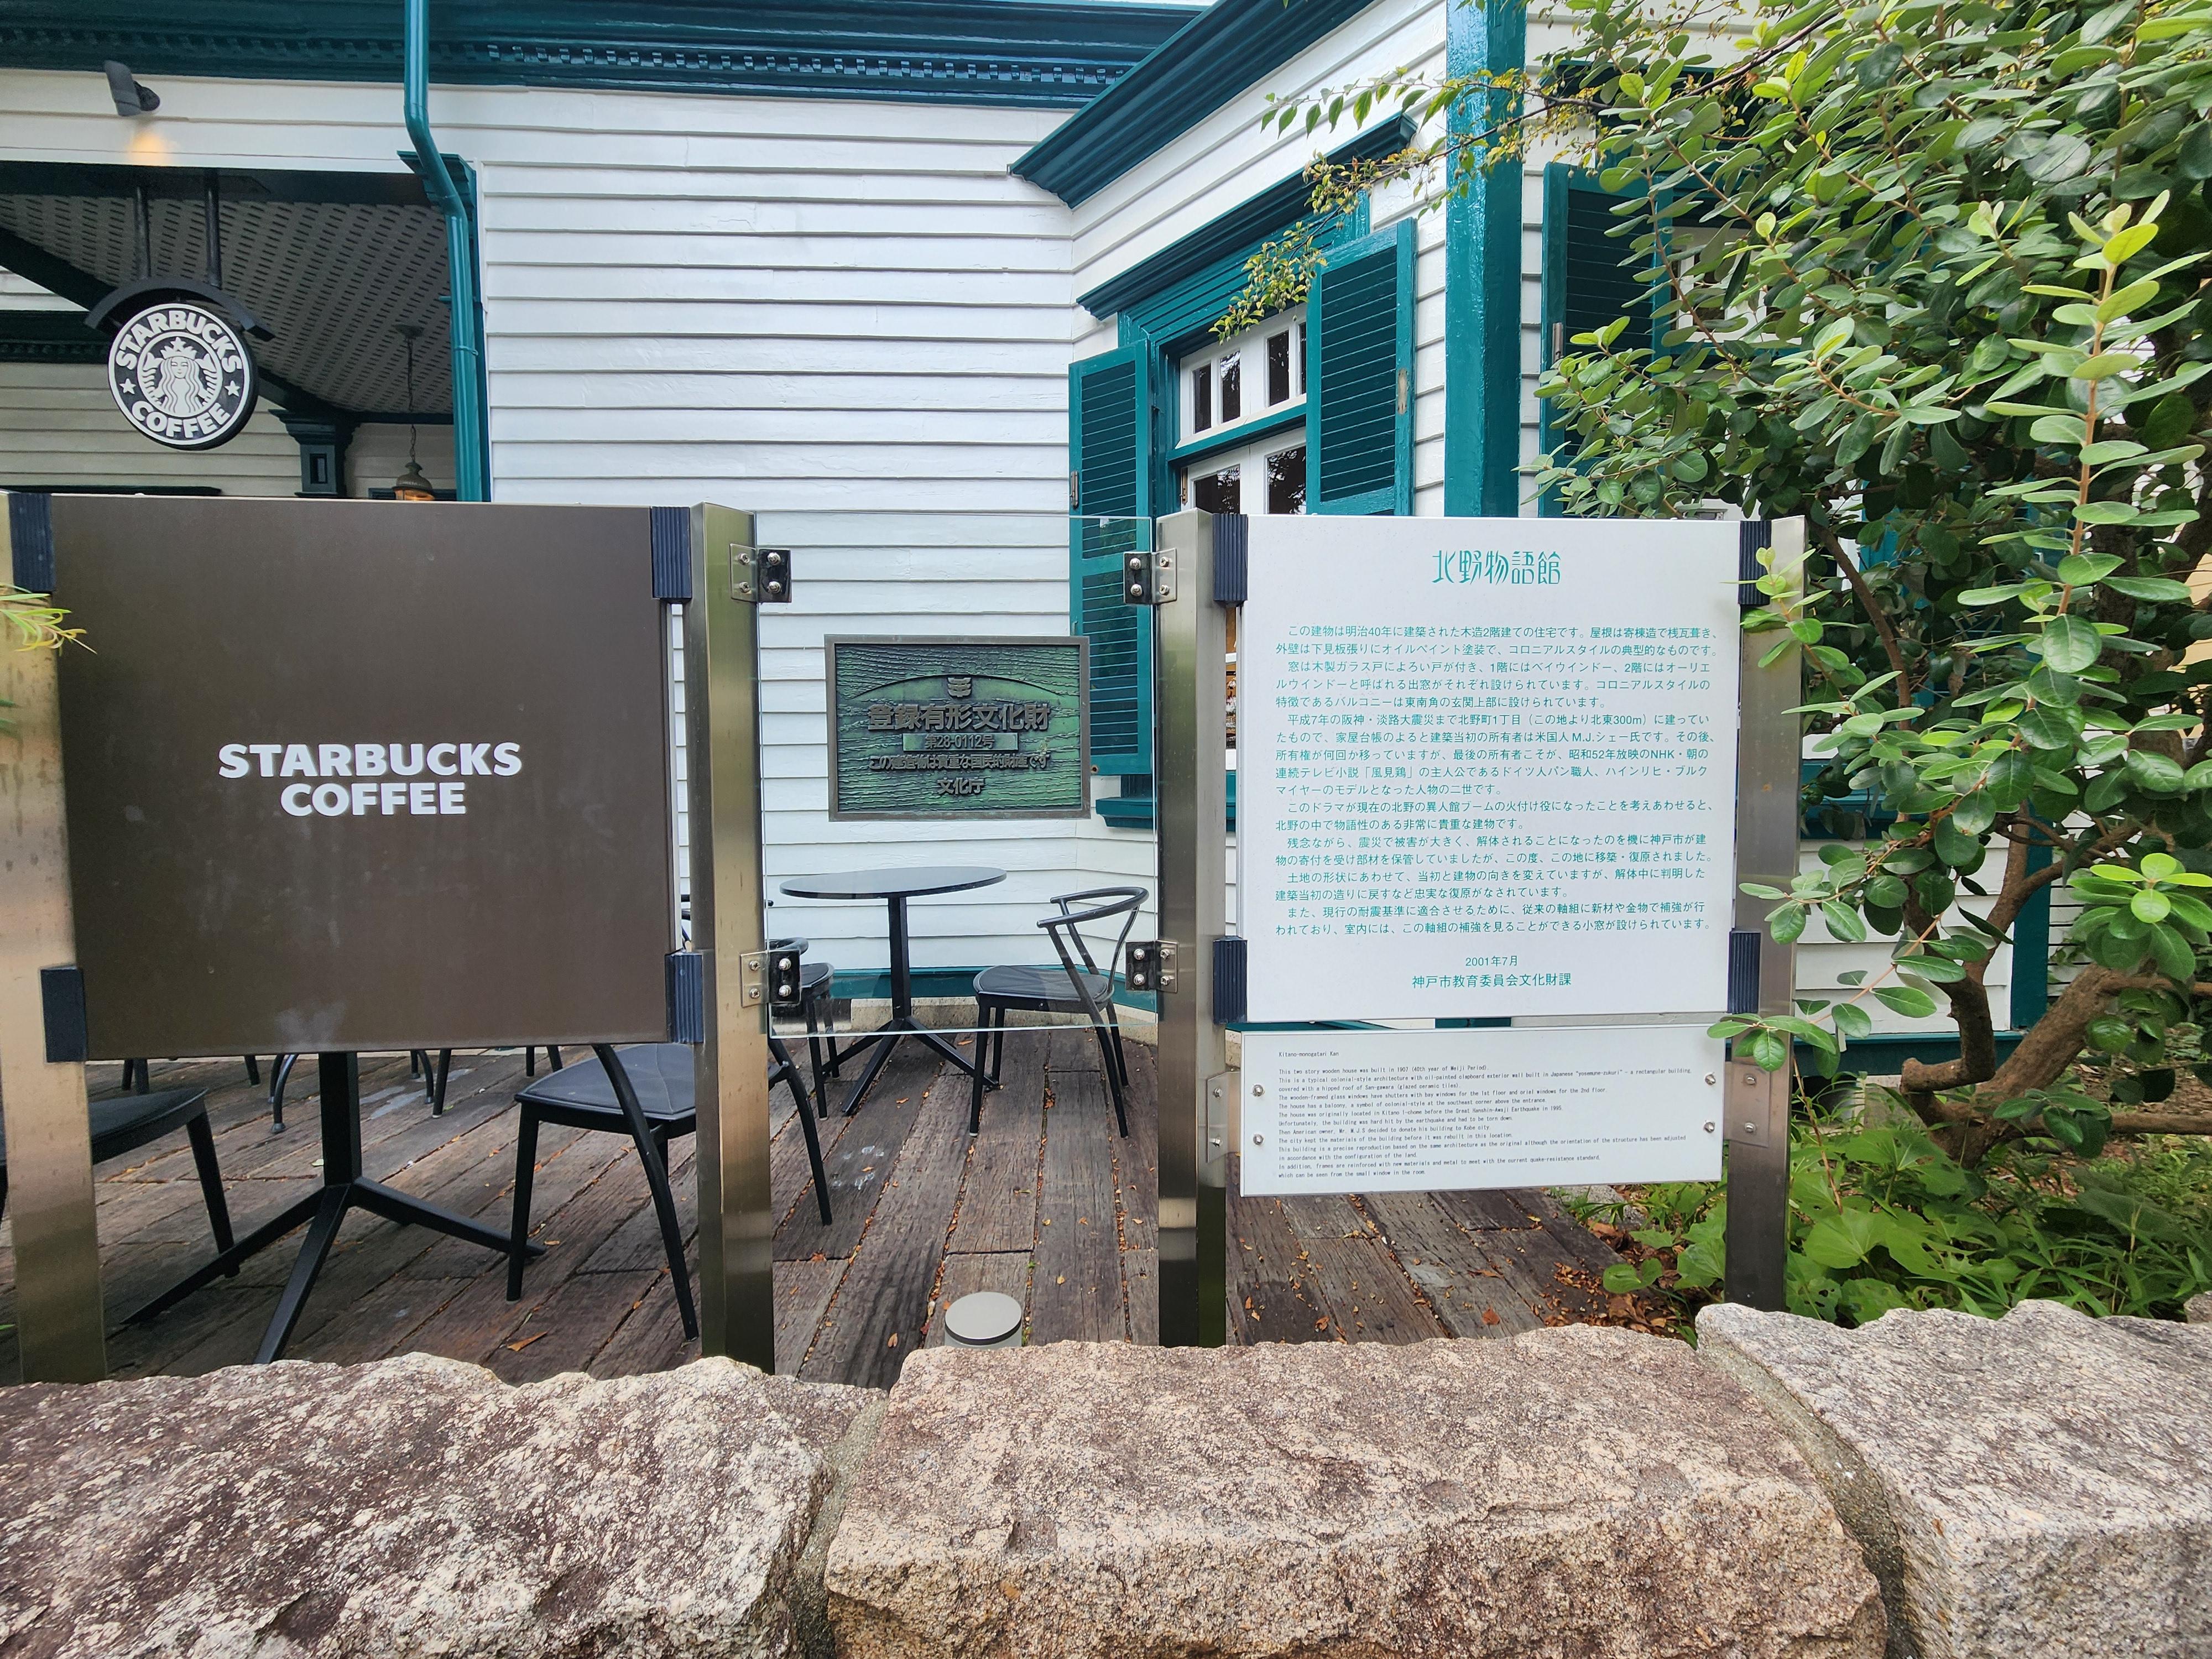 STARBUCKS
COFFEE
STARBUCKS
COFFEE
登録有形文化財
第28-0112号
この建造物は貴重な国民的財産です
文化庁
北野物語館
この建物は明治40年に建築された木造2階建ての住宅です。屋根は寄棟造で桟瓦葺き、
外壁は下見板張りにオイルペイント塗装で、コロニアルスタイルの典型的なものです。
窓は木製ガラス戸によろい戸が付き、1階にはベイウインドー、2階にはオーリエ
ルウインドーと呼ばれる出窓がそれぞれ設けられています。コロニアルスタイルの
特徴であるバルコニーは東南角の玄関上部に設けられています。
平成7年の阪神・淡路大震災まで北野町1丁目（この地より北東300m）に建ってい
たもので、家屋台帳のよると建築当初の所有者は米国人M.J.シェー氏です。その後、
所有権が何回か移っていますが、最後の所有者こそが、昭和52年放映のNHK・朝の
連続テレビ小説「風見鶏」の主人公であるドイツ人パン職人、ハインリヒ・ブルク
マイヤーのモデルとなった人物の二世です。
このドラマが現在の北野の異人館ブームの火付け役になったことを考えあわせると、
北野の中で物語性のある非常に貴重な建物です。
残念ながら、震災で被害が大きく、解体されることになったのを機に神戸市が建
物の寄付を受け部材を保管していましたが、この度、この地に移築・復原されました。
土地の形状にあわせて、当初と建物の向きを変えていますが、解体中に判明した
建築当初の造りに戻すなど忠実な復原がなされています。
また、現行の耐震基準に適合させるために、従来の軸組に新材や金物で補強が行
われており、室内には、この軸組の補強を見ることができる小窓が設けられています。
2001年7月
神戸市教育委員会文化財課
Kitano-monogatari Kan
This two story wooden house was built in 1907 (40th year of Meiji Period)
This is a typical colonial-style architecture with oil-painted clapboard exterior wall built in Japanese "yosemune-zukuri" - a rectangular building,
covered with a hipped roof of San-gawara (glazed ceramic tiles).
The wooden-framed glass windows have shutters with bay windows for the 1st floor and oriel windows for the 2nd floor.
The house has a balcony, a symbol of colonial-style at the southeast corner above the entrance.
The house was originally located in Kitano 1-chome before the Great Hanshin-Awaji Earthquake in 1995.
Unfortunately, the building was hard hit by the earthquake and had to be torn down.
Then American owner, Mr. M.J.S decided to donate his building to Kobe city.
The city kept the materials of the building before it was rebuilt in this location.
This building is a precise reproduction based on the same architecture as the original although the orientation of the structure has been adjusted
in accordance with the configuration of the land.
In addition, frames are reinforced with new materials and metal to meet with the current quake-resistance standard,
which can be seen from the small window in the room.